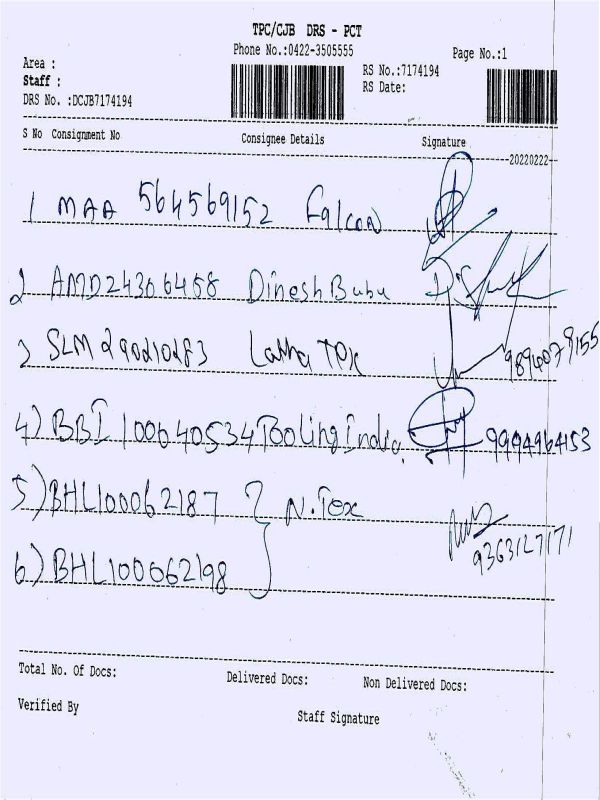 TPC/CJB DRS - PCT
Phone No.:0422-3505555
Page No.:1
Area :
Staff :
DRS No. :DCJB7174194
RS No.:7174194
RS Date:
S No Consignment No Consignee Details Signature
20220222
1 MAA 564569152 Falcon
2 AMD24306458 Dinesh Babu
3 SLM 290210283 Latha TPX 9894079155
4) BBI 100640534 Tooling India 9994964153
5) BHL100062187 N. Tex
9363127171
6) BHL100062198
Total No. Of Docs: Delivered Docs: Non Delivered Docs:
Verified By
Staff Signature